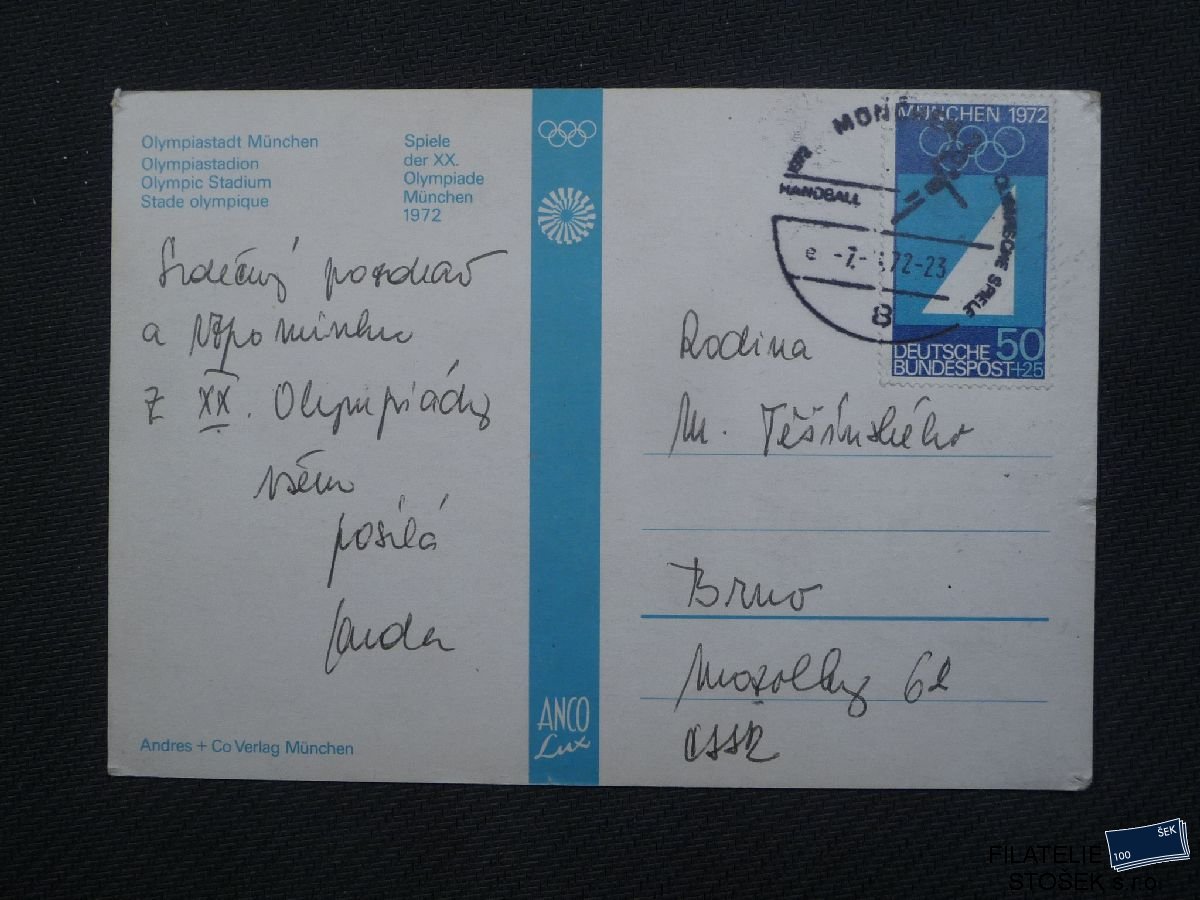 Olympiastadt München
Olympiastadion
Olympic Stadium
Stade olympique
Spiele
der XX.
Olympiade
München
1972
Srdečný pozdrav
a vzpomínku
z XX. Olympiády
všem
posílá
Andres + Co Verlag München
ANCO
Lux
MÜNCHEN 1972
DEUTSCHE
BUNDESPOST
50
+25
HANDBALL
OLYMPISCHE SPIELE
e -7. .72-23
8
Rodina
M. Těšínského
Brno
Mozolky 62
ČSSR
100 ŠEK
FILATELIE
STOŠEK s.r.o.